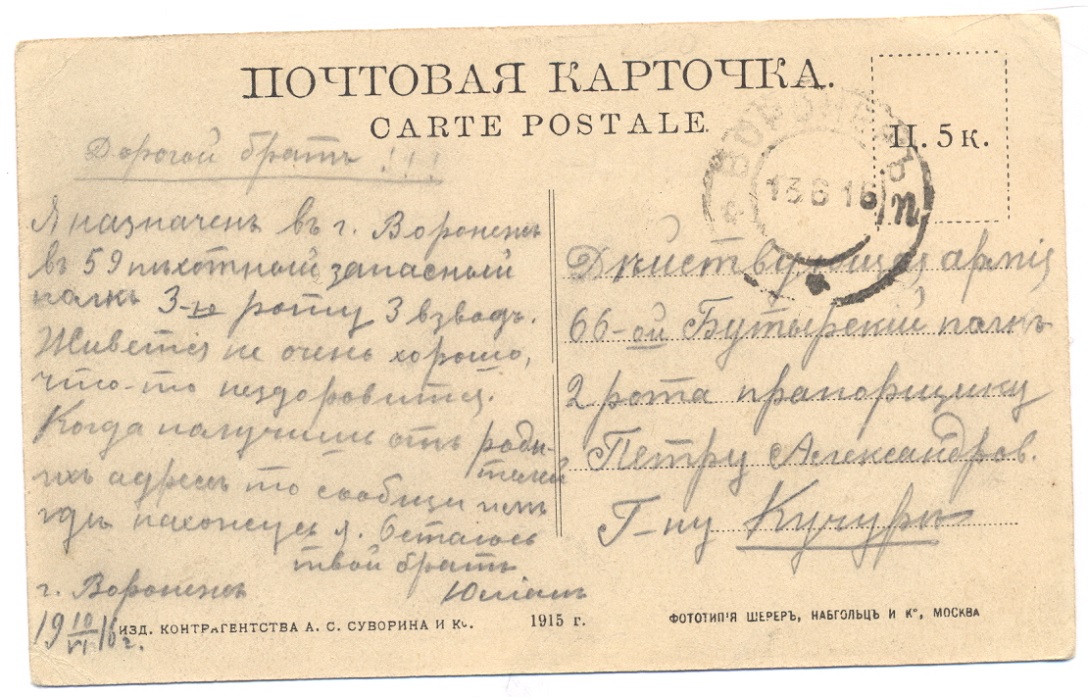 ПОЧТОВАЯ КАРТОЧКА.
CARTE POSTALE.
Ц. 5 к.
ВОРОНЕЖЪ
13 6 16
Дорогой братъ!!!
Я назначенъ въ г. Воронежъ
въ 59 пѣхотный запасный
полкъ 3-ю роту 3 взводъ.
Живется не очень хорошо,
что-то нездоровится.
Когда получишь отъ роди-
телей
ихъ адресъ то сообщи имъ
гдѣ нахожусь я. Остаюсь
твой братъ
Юліанъ
г. Воронежъ
19 10/VI 16 г.
Дѣйствующая армія
66-ой Бутырскій полкъ
2 рота прапорщику
Петру Александров.
Г-ну Кучуръ
ИЗД. КОНТРАГЕНТСТВА А. С. СУВОРИНА И Кº.
1915 г.
ФОТОТИПІЯ ШЕРЕРЪ, НАБГОЛЬЦЪ И Кº, МОСКВА